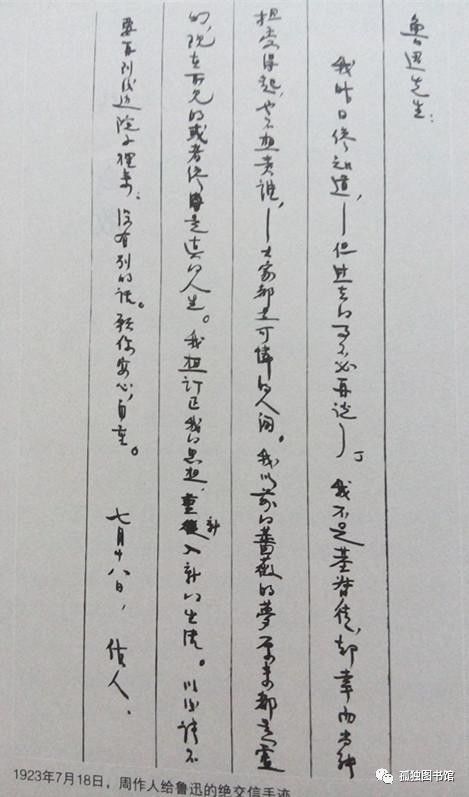 魯迅先生：
我昨日纔知道，——但过去的事不必再说了。我不是基督徒，却幸而尚能
担受得起，也不想责谁，——大家都是可憐的人间。我以前的薔薇的夢原来都是虚
幻的，现在所见的或者纔是真的人生。我想订正我的思想，重新入新的生活。以后请不
要再到后边院子裡来，没有别的话。愿你安心，自重。
七月十八日，作人。
1923年7月18日，周作人给鲁迅的绝交信手迹
孤独图书馆